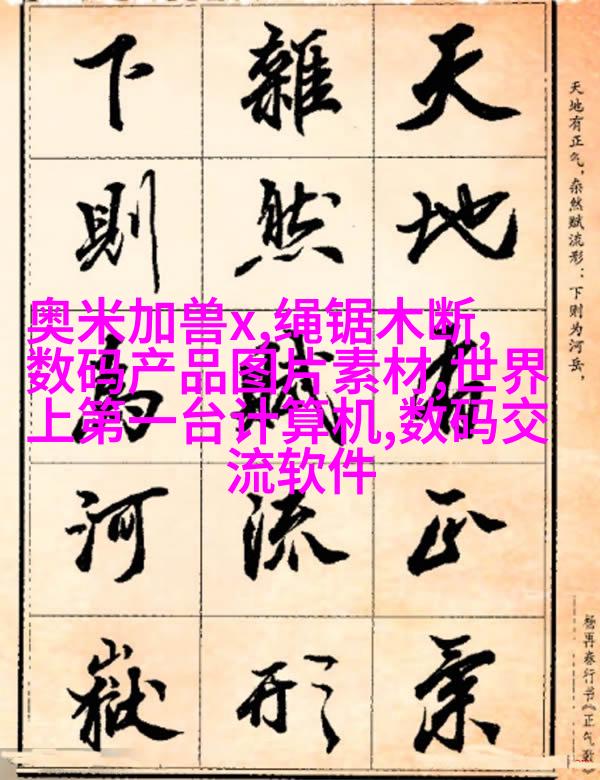 天地有正氣
雜然賦流形
下則為河嶽
天地有正气，杂然赋流形：下则为河岳，
杨再春行书《正气歌》
奥米加兽x,绳锯木断,
数码产品图片素材,世界
上第一台计算机,数码交
流软件